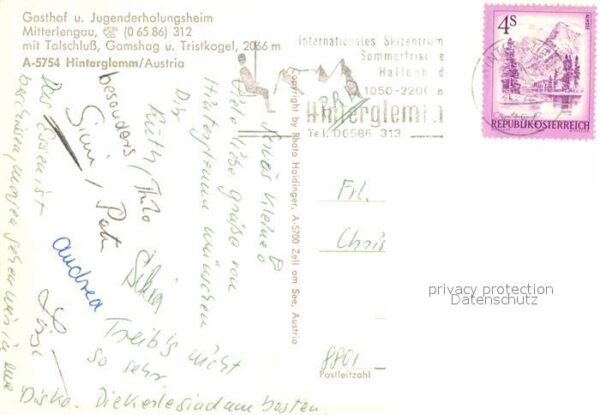 Gasthof u. Jugenderholungsheim
Mitterlengau, ☎ (0 65 86) 312
mit Talschluß, Gamshag u. Tristkogel, 2066 m
A-5754 Hinterglemm/Austria
Internationales Skizentrum
Sommerfrische
Hallenb
1050-2200 m
Hinterglemm
Tel. 06586 313
4S
REPUBLIK ÖSTERREICH
Copyright by Photo Haidinger, A-5700 Zell am See, Austria
Servus Kleine
Viele liebe Grüße von
Hinterglemm wünschen
Dir
Ruth / Thilo
besonders
Silvia
Andrea
Treib's nicht
so sehr.
Das Essen ist
morgen gehen wir in eine
Disko. Die Kerle sind am besten.
Frl.
Chris
8801
Postleitzahl
privacy protection
Datenschutz